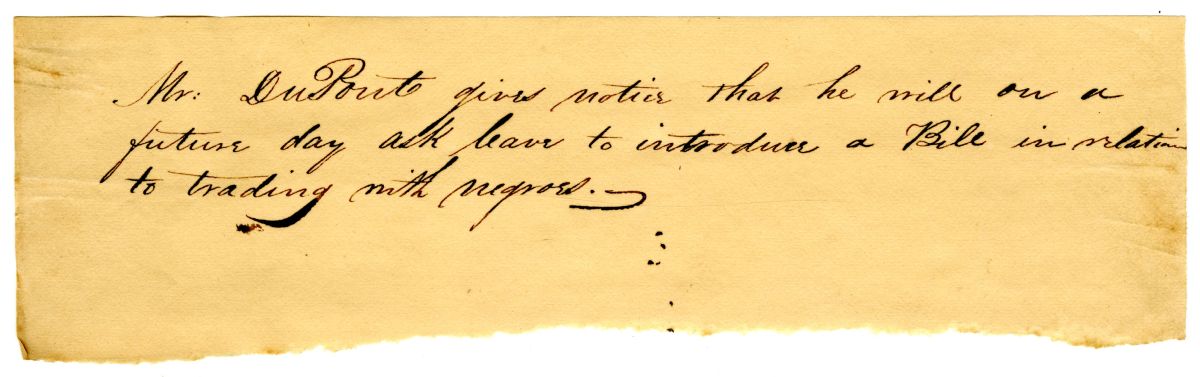 Mr: DuPont gives notice that he will on a
future day ask leave to introduce a Bill in relation
to trading with negroes.